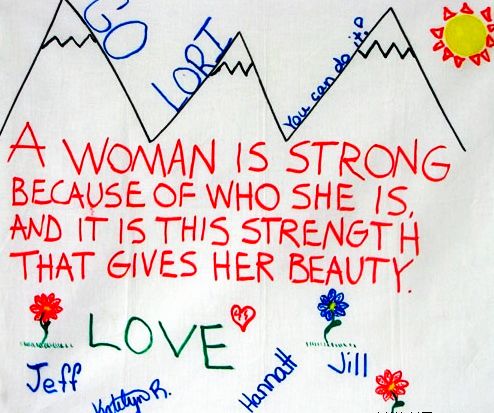 GO
LORI
You can do it!
A WOMAN IS STRONG
BECAUSE OF WHO SHE IS,
AND IT IS THIS STRENGTH
THAT GIVES HER BEAUTY.
LOVE
Jeff
Katelyn R.
Hannah
Jill